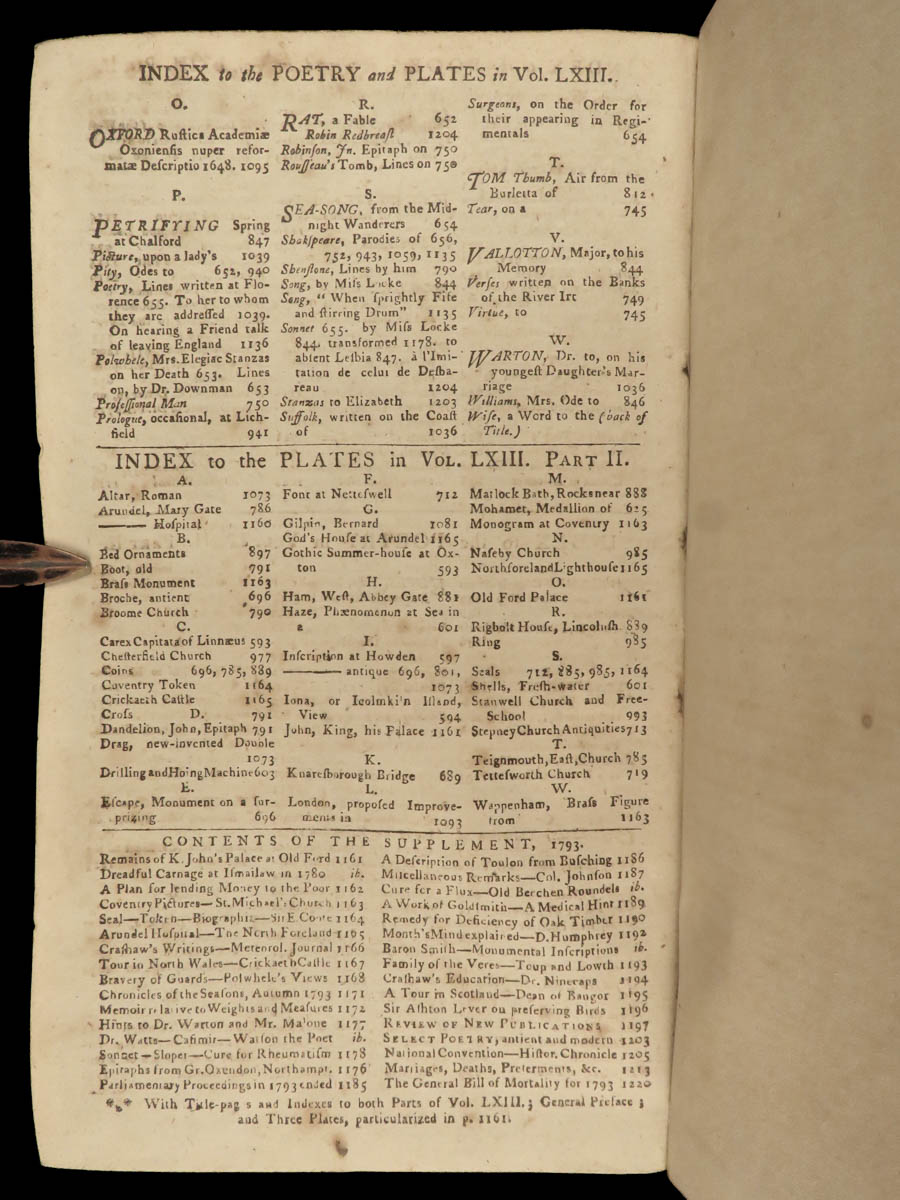 INDEX to the POETRY and PLATES in Vol. LXIII.
O.
OXFORD Ruſtica Academiæ
Oxonienſis nuper refor-
matæ Deſcriptio 1648. 1095
P.
PETRIFYING Spring
at Chalford 847
Picture, upon a lady's 1039
Pity, Odes to 652, 940
Poetry, Lines written at Flo-
rence 655. To her to whom
they are addreſſed 1039.
On hearing a Friend talk
of leaving England 1136
Polwhele, Mrs. Elegiac Stanzas
on her Death 653. Lines
on, by Dr. Downman 653
Profeſſional Man 750
Prologue, occaſional, at Lich-
field 941
R.
RAT, a Fable 652
Robin Redbreaſt 1204
Robinſon, Jn. Epitaph on 750
Rouſſeau's Tomb, Lines on 750
S.
SEA-SONG, from the Mid-
night Wanderers 654
Shakſpeare, Parodies of 656,
752, 943, 1059, 1135
Shenſtone, Lines by him 790
Song, by Miſs Locke 844
Song, " When ſprightly Fife
and ſtirring Drum" 1135
Sonnet 655. by Miſs Locke
844. transformed 1178. to
abſent Leſbia 847. à l'Imi-
tation de celui de Deſba-
reau 1204
Stanzas to Elizabeth 1203
Suffolk, written on the Coaſt
of 1036
Surgeons, on the Order for
their appearing in Regi-
mentals 654
T.
TOM Thumb, Air from the
Burletta of 812
Tear, on a 745
V.
VALLOTTON, Major, to his
Memory 844
Verſes written on the Banks
of the River Irt 749
Virtue, to 745
W.
WARTON, Dr. to, on his
youngeſt Daughter's Mar-
riage 1036
Williams, Mrs. Ode to 846
Wiſe, a Word to the (back of
Title.)
INDEX to the PLATES in VOL. LXIII. PART II.
A.
Altar, Roman 1073
Arundel, Mary Gate 786
——— Hoſpital 1160
B.
Bed Ornaments 897
Boot, old 791
Braſs Monument 1163
Broche, antient 696
Broome Church 790
C.
Carex Capitata of Linnæus 593
Cheſterfield Church 977
Coins 696, 785, 889
Coventry Token 1164
Crickaeth Caſtle 1165
Croſs D. 791
Dandelion, John, Epitaph 791
Drag, new-invented Double
1073
Drilling and Hoing Machine 603
E.
Eſcape, Monument on a ſur-
prizing 696
F.
Font at Netteſwell 712
G.
Gilpin, Bernard 1081
God's Houſe at Arundel 1165
Gothic Summer-houſe at Ox-
ton 593
H.
Ham, Weſt, Abbey Gate 881
Haze, Phænomenon at Sea in
a 601
I.
Inſcription at Howden 597
——— antique 696, 801,
1073
Iona, or Icolmki'n Iſland,
View 594
John, King, his Palace 1161
K.
Knareſborough Bridge 689
L.
London, propoſed Improve-
ments in 1093
M.
Matlock Bath, Rocks near 888
Mohamet, Medallion of 625
Monogram at Coventry 1163
N.
Naſeby Church 985
Northforeland Lighthouſe 1165
O.
Old Ford Palace 1161
R.
Rigbolt Houſe, Lincolnſh. 889
Ring 985
S.
Seals 712, 885, 985, 1164
Shells, Freſh-water 601
Stanwell Church and Free-
School 993
Stepney Church Antiquities 713
T.
Teignmouth, Eaſt, Church 785
Tetteſworth Church 719
W.
Wappenham, Braſs Figure
from 1163
CONTENTS OF THE SUPPLEMENT, 1793.
Remains of K. John's Palace at Old Ford 1161
Dreadful Carnage at Iſmailow in 1780 ib.
A Plan for lending Money to the Poor 1162
Coventry Pictures—St. Michael's Church 1163
Seal—Token—Biographia—Sir E. Coote 1164
Arundel Hoſpital—The North Foreland 1165
Craſhaw's Writings—Meteorol. Journal 1166
Tour in North Wales—Crickaeth Caſtle 1167
Bravery of Guards—Polwhele's Views 1168
Chronicles of the Seaſons, Autumn 1793 1171
Memoir relative to Weights and Meaſures 1172
Hints to Dr. Warton and Mr. Malone 1177
Dr. Watts—Caſimir—Watſon the Poet ib.
Sonnet—Sloper—Cure for Rheumatiſm 1178
Epitaphs from Gr. Oxendon, Northampt. 1176
Parliamentary Proceedings in 1793 ended 1185
A Deſcription of Toulon from Buſching 1186
Miſcellaneous Remarks—Col. Johnſon 1187
Cure for a Flux—Old Berchen Roundels ib.
A Work of Goldſmith—A Medical Hint 1189
Remedy for Deficiency of Oak Timber 1190
Month's Mind explained—D. Humphrey 1192
Baron Smith—Monumental Inſcriptions ib.
Family of the Veres—Toup and Lowth 1193
Craſhaw's Education—Dr. Nineraps 1194
A Tour in Scotland—Dean of Bangor 1195
Sir Aſhton Lever on preſerving Birds 1196
REVIEW OF NEW PUBLICATIONS 1197
SELECT POETRY, antient and modern 1203
National Convention—Hiſtor. Chronicle 1205
Marriages, Deaths, Preferments, &c. 1213
The General Bill of Mortality for 1793 1220
*** With Title-pag s and Indexes to both Parts of Vol. LXIII.; General Preface;
and Three Plates, particularized in p. 1161.